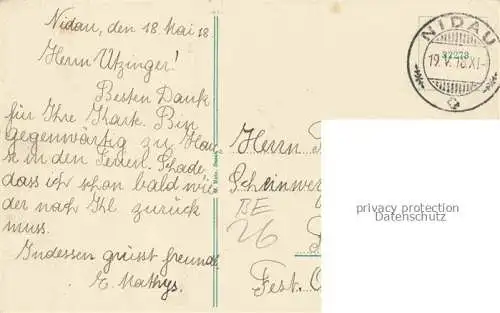 Nidau, den 18 Mai 18.
Herrn Utzinger!
Besten Dank
für Ihre Kark. Bin
gegenwärtig zu Hau
se in den Ferien. Schade
dass ich schon bald wie
der nach Ihl zurück
muss.
Indessen grüsst freundl.
E. Mathys.
NIDAU
92278
19.V.18.XI-
Herrn
Scheinwer
BE
26
Fest.
privacy protection
Datenschutz